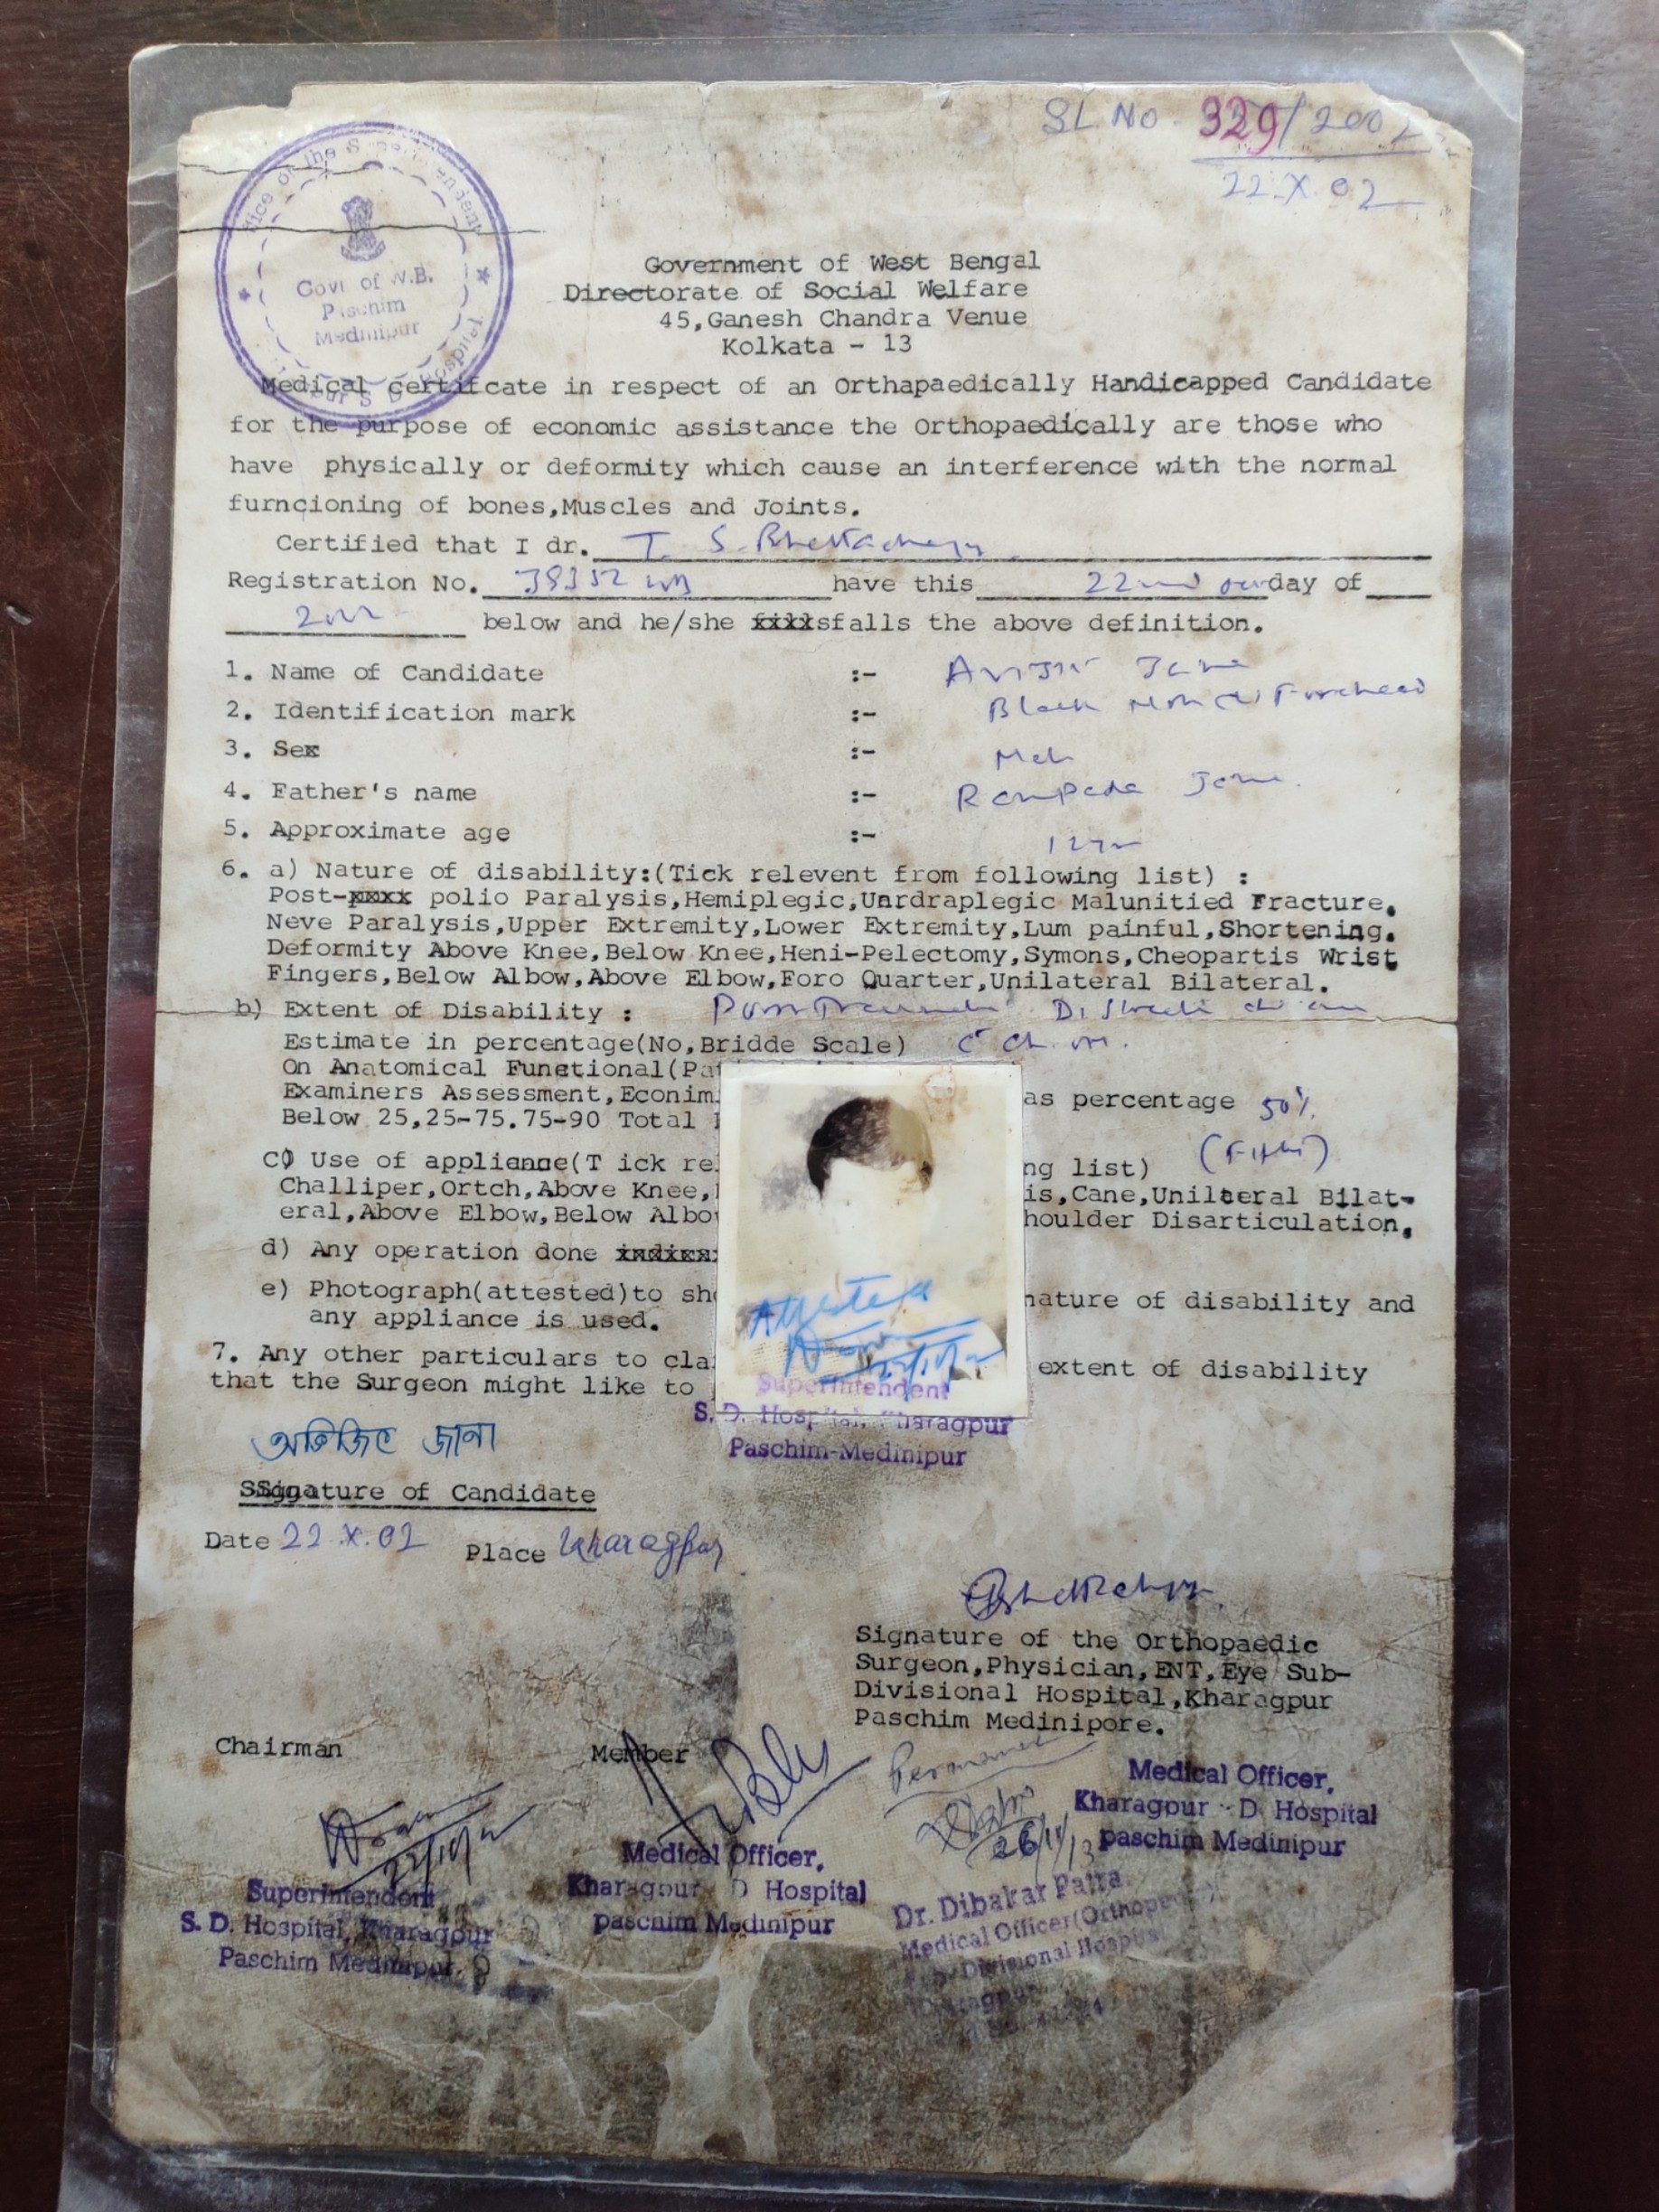 SL NO. 329/2002
22.X.02
Office of the Superintendent
Govt of W.B.
Paschim
Medinipur
Government of West Bengal
Directorate of Social Welfare
45,Ganesh Chandra Venue
Kolkata - 13
Medical certifcate in respect of an Orthapaedically Handicapped Candidate
for the purpose of economic assistance the Orthopaedically are those who
have physically or deformity which cause an interference with the normal
furncioning of bones,Muscles and Joints.
Certified that I dr. T. S. Bhattacharyya
Registration No. have this 22nd day of
below and he/she falls the above definition.
1. Name of Candidate :- Avijit Jana
2. Identification mark :- Black Forehead
3. Sex :- Male
4. Father's name :- Rampada Jana.
5. Approximate age :- 12 yr
6. a) Nature of disability:(Tick relevent from following list) :
Post- polio Paralysis,Hemiplegic,Unrdraplegic Malunitied Fracture.
Neve Paralysis,Upper Extremity,Lower Extremity,Lum painful,Shortening.
Deformity Above Knee,Below Knee,Heni-Pelectomy,Symons,Cheopartis Wrist
Fingers,Below Albow,Above Elbow,Foro Quarter,Unilateral Bilateral.
b) Extent of Disability :
Estimate in percentage(No,Bridde Scale)
On Anatomical Functional(Pa
Examiners Assessment,Econim as percentage 50%
Below 25,25-75.75-90 Total (Fifty)
c) Use of appliance(T ick re ng list)
Challiper,Ortch,Above Knee, is,Cane,Unilteral Bilat-
eral,Above Elbow,Below Albo houlder Disarticulation.
d) Any operation done
e) Photograph(attested)to sh nature of disability and
any appliance is used.
7. Any other particulars to cla extent of disability
that the Surgeon might like to
Attested
Superintendent
S. D. Hospital, Kharagpur
Paschim-Medinipur
অভিজিৎ জানা
Signature of Candidate
Date 22.X.02 Place Kharagpur
Signature of the Orthopaedic
Surgeon,Physician,ENT,Eye Sub-
Divisional Hospital,Kharagpur
Paschim Medinipore.
Chairman Member Permanent
22/10/02
26/11/13
Medical Officer,
Kharagpur D Hospital
paschim Medinipur
Medical Officer,
Kharagpur D Hospital
paschim Medinipur
Superintendent
S. D. Hospital, Kharagpur
Paschim Medinipur
Dr. Dibakar Patra
Medical Officer(Orthopedic)
Sub-Divisional Hospital
Kharagpur